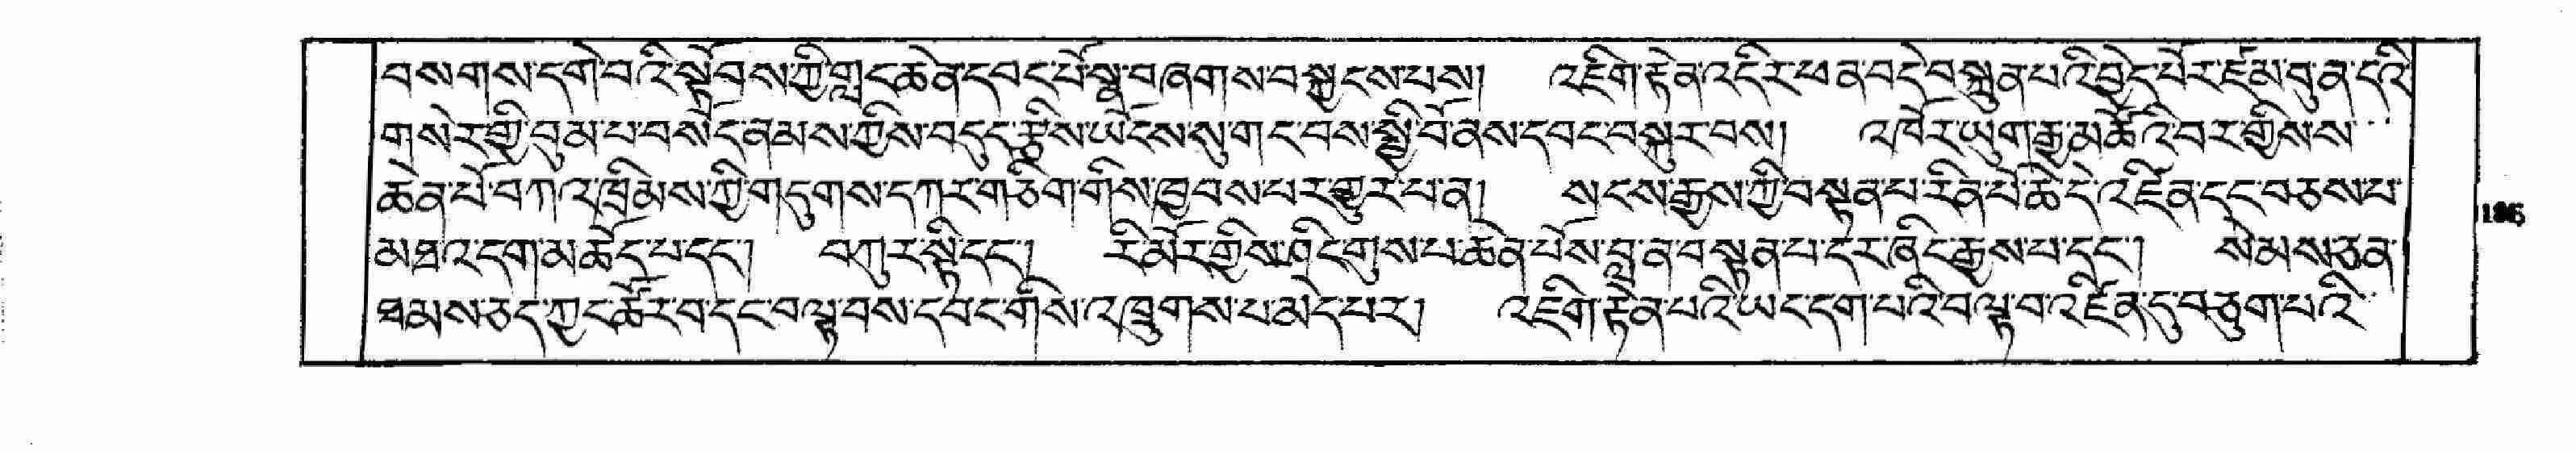 བསགས་དགེ་བའི་སྟོབས་ཀྱི་གླང་ཆེན་དབང་པོ་སྣ་བཞགས་བསྐྱངས་པས། འཇིག་རྟེན་འདིར་ཕན་བདེ་བསྐྲུན་པའི་བྱེད་པོར་ཛམ་བུ་ན་དའི
གསེར་གྱི་བུམ་པ་བསོད་ནམས་ཀྱིས་བདུད་རྩིས་ཡོངས་སུ་གང་བས་སྤྱི་བོ་ནས་དབང་བསྐུར་བས། འཁོར་ཡུག་རྒྱ་མཚོའི་བར་གྱིས་ས
ཆེན་པོ་བཀའ་ཁྲིམས་ཀྱི་གདུགས་དཀར་གཅིག་གིས་ཁྱབས་པར་གྱུར་པ་ན། སངས་རྒྱས་ཀྱི་བསྟན་པ་རིན་པོ་ཆེ་དེ་འཛིན་དང་བཅས་པ་
མཐའ་དག་མཆོད་པ་དང་། བཀུར་སྟི་དང་། རི་མོར་གྱིས་ཤིང་གུས་པ་ཆེན་པོས་བླ་ན་བསྟན་པ་དར་ཞིང་རྒྱས་པ་དང་། སེམས་ཅན་
ཐམས་ཅད་ཀྱང་ཚོར་བ་དང་བལྟ་བས་དབང་གིས་འཁྲུགས་པ་མེད་པར། འཇིག་རྟེན་པའི་ཡང་དག་པའི་བལྟ་བ་འཛིན་དུ་བཅུག་པའི་